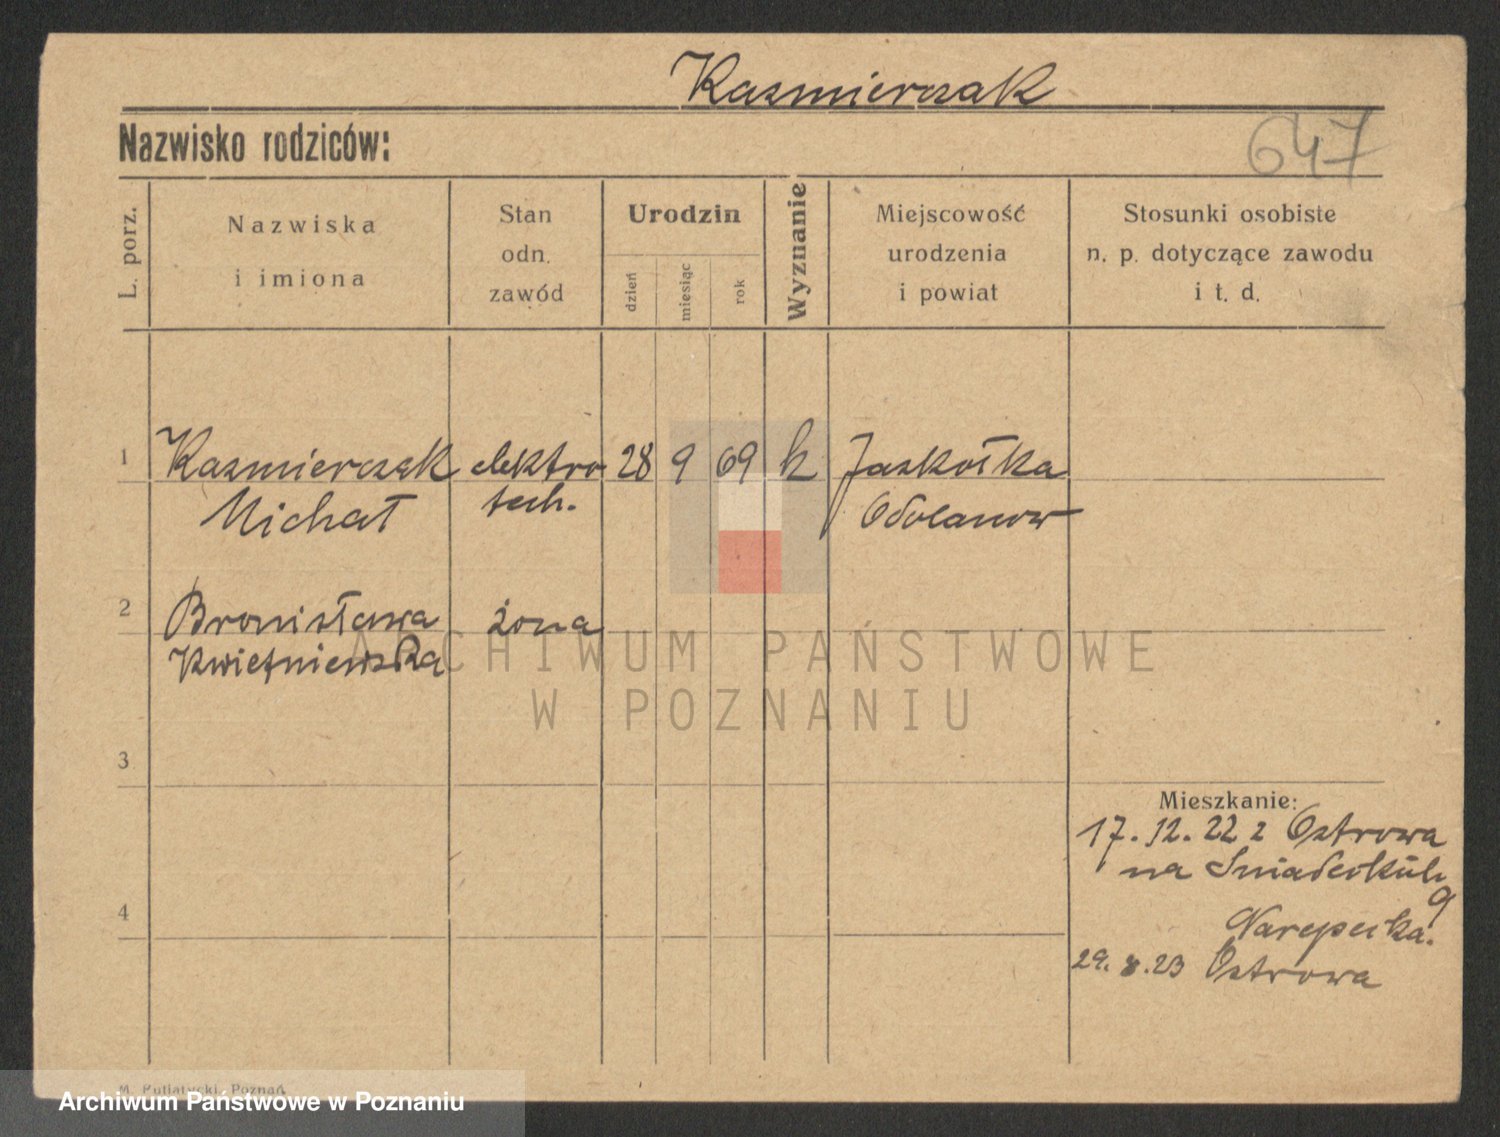 Kazmierczak
Nazwisko rodziców:
647
L. porz.
Nazwiska
i imiona
Stan
odn.
zawód
Urodzin
dzień
miesiąc
rok
Wyznanie
Miejscowość
urodzenia
i powiat
Stosunki osobiste
n. p. dotyczące zawodu
i t. d.
1 Kazmierczak elektro 28 9 69 k Jaskółka
Michał tech. Odolanow
2 Bronisława żona
Kwietniewska
3
4
Mieszkanie:
17. 12. 22 z Ostrowa
na
9
29. 8. 23 Ostrowa
M. Putiatycki, Poznań
ARCHIWUM PAŃSTWOWE
W POZNANIU
Archiwum Państwowe w Poznaniu